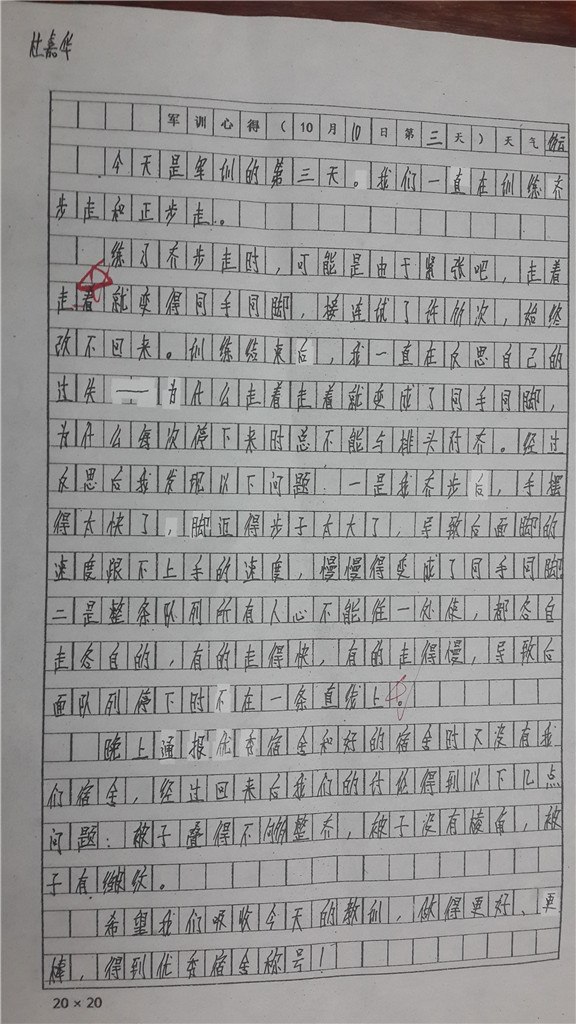 杜嘉华
军训心得(10月10日第三天)天气多云
今天是军训的第三天。我们一直在训练齐
步走和正步走。
练了齐步走时,可能是由于紧张吧,走着
走着就变得同手同脚,接连试了许多次,始终
改不回来。训练结束后,我一直在反思自己的
过失——为什么走着走着就变成了同手同脚,
为什么每次停下来时总不能与排头对齐。经过
反思后我发现以下问题:一是我齐步后,手摆
得太快了,脚迈得步子太大了,导致后面脚的
速度跟不上手的速度,慢慢得变成了同手同脚。
二是整条队列所有人心不能往一处使,都各自
走各自的,有的走得快,有的走得慢,导致后
面队列停下时不在一条直线上。
晚上通报优秀宿舍和好的宿舍时又没有我
们宿舍,经过回来后我们的讨论得到以下几点
问题:被子叠得不够整齐,被子没有棱角,被
子有皱纹。
希望我们吸收今天的教训,做得更好、更
棒,得到优秀宿舍称号!
20×20